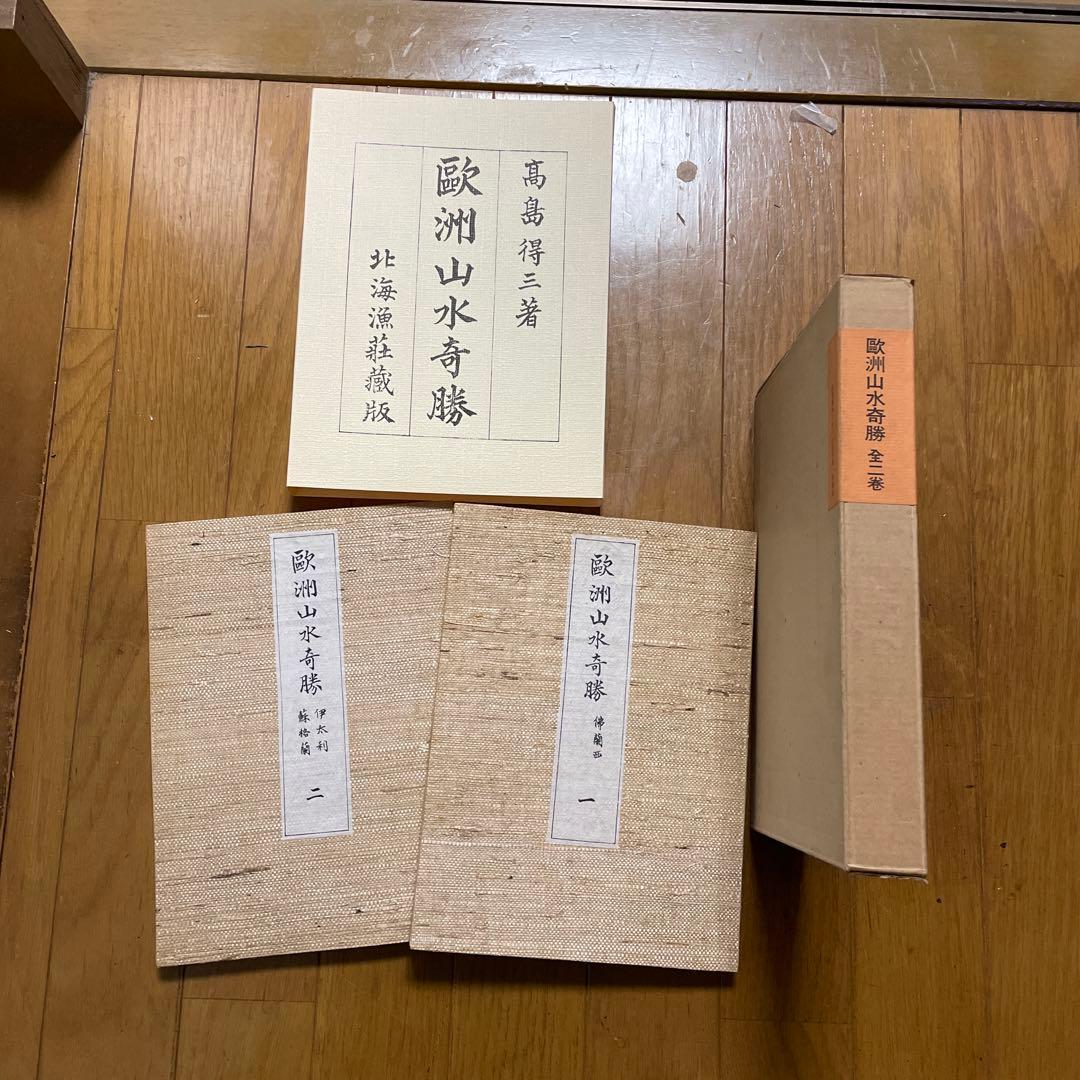 高島得三著
歐洲山水奇勝
北海漁莊藏版
歐洲山水奇勝 全二卷
歐洲山水奇勝 佛蘭西 一
歐洲山水奇勝 伊太利
蘇格蘭
二